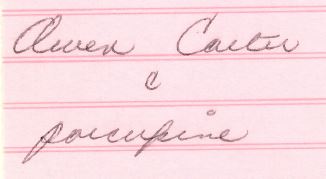 Owen Carter
c
porcupine